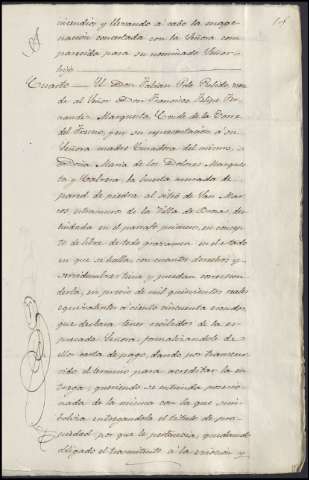 incendios y llevando a cabo la enage-
nación concertada con la Señora com-
parecida para su nominado Señor
hijo
Cuarto El Don Fabian Polo Pulido ven
de al Señor Don Francisco Felipe Fer-
nandez Marquesta, Conde de la Torre
del Fresno, y en su representación a su
Señora madre Curadora del mismo,
Doña Maria de los Dolores Marques-
ta y Cabrera, la huerta murada de
pared de piedra al sitio de San Mar-
cos, extramuros de la Villa de Brozas, des-
lindada en el parrafo primero, en concep-
to de libre de todo gravamen en el estado
en que se halla, con cuantos derechos y
servidumbres tiene y puedan correspon-
derla, en precio de mil quinientos reales
equivalentes á ciento cincuenta escudos,
que declara tener recibidos de la es-
presada Señora, formalizandole de
ello carta de pago, dando por transcur-
rido el termino para acreditar la en-
trega; queriendo se entienda posesio-
nada de la misma con la que sim-
boliza entregandola el titulo de pro-
piedad por que le pertenecia, quedando
obligado el transmitente á la eviccion y